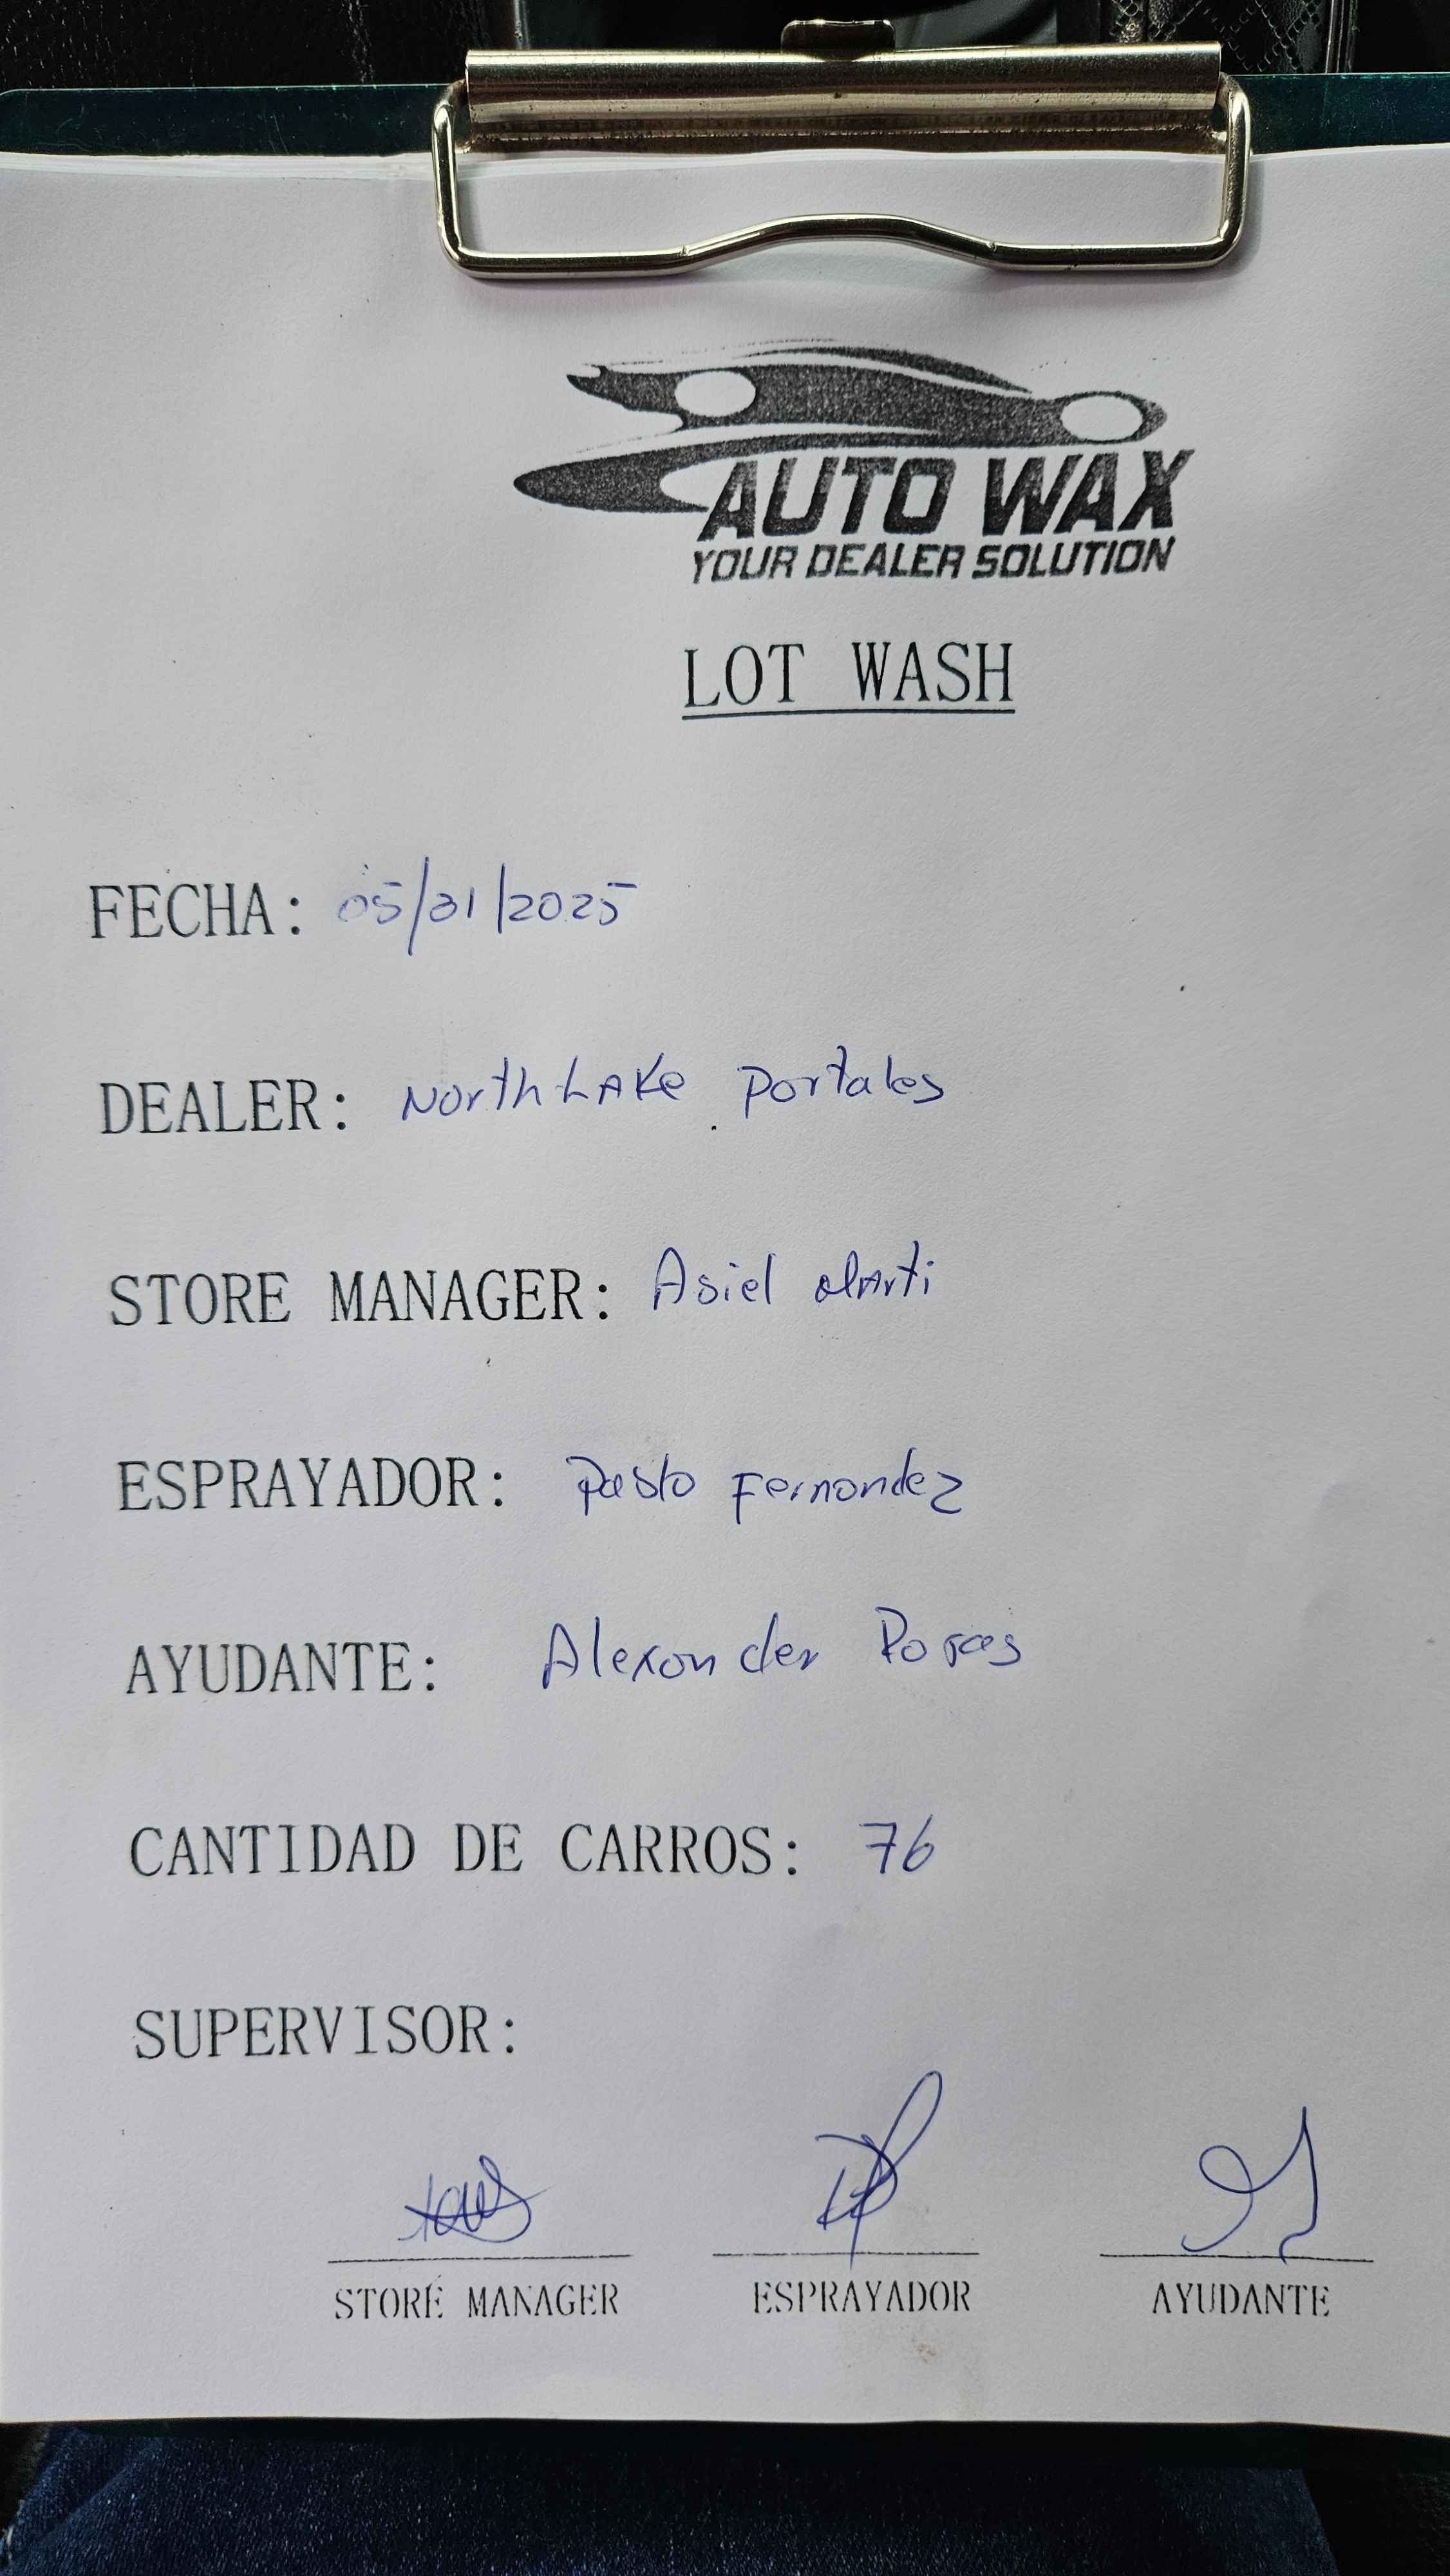 AUTO WAX
YOUR DEALER SOLUTION
LOT WASH
FECHA: 05/31/2025
DEALER: NorthLAKe Portales
STORE MANAGER: Asiel Marti
ESPRAYADOR: Pablo Fernandez
AYUDANTE: Alexander Rojas
CANTIDAD DE CARROS: 76
SUPERVISOR:
STORE MANAGER ESPRAYADOR AYUDANTE